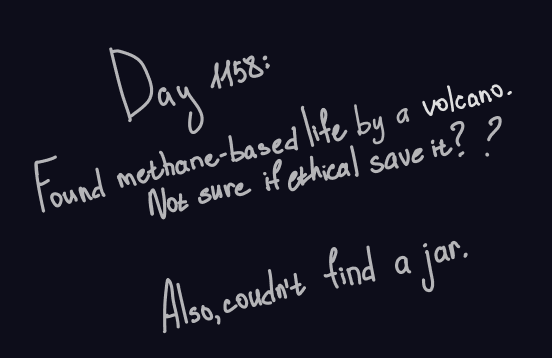 Day 1158:
Found methane-based life by a volcano.
Not sure if ethical save it? ?
Also, coudn't find a jar.